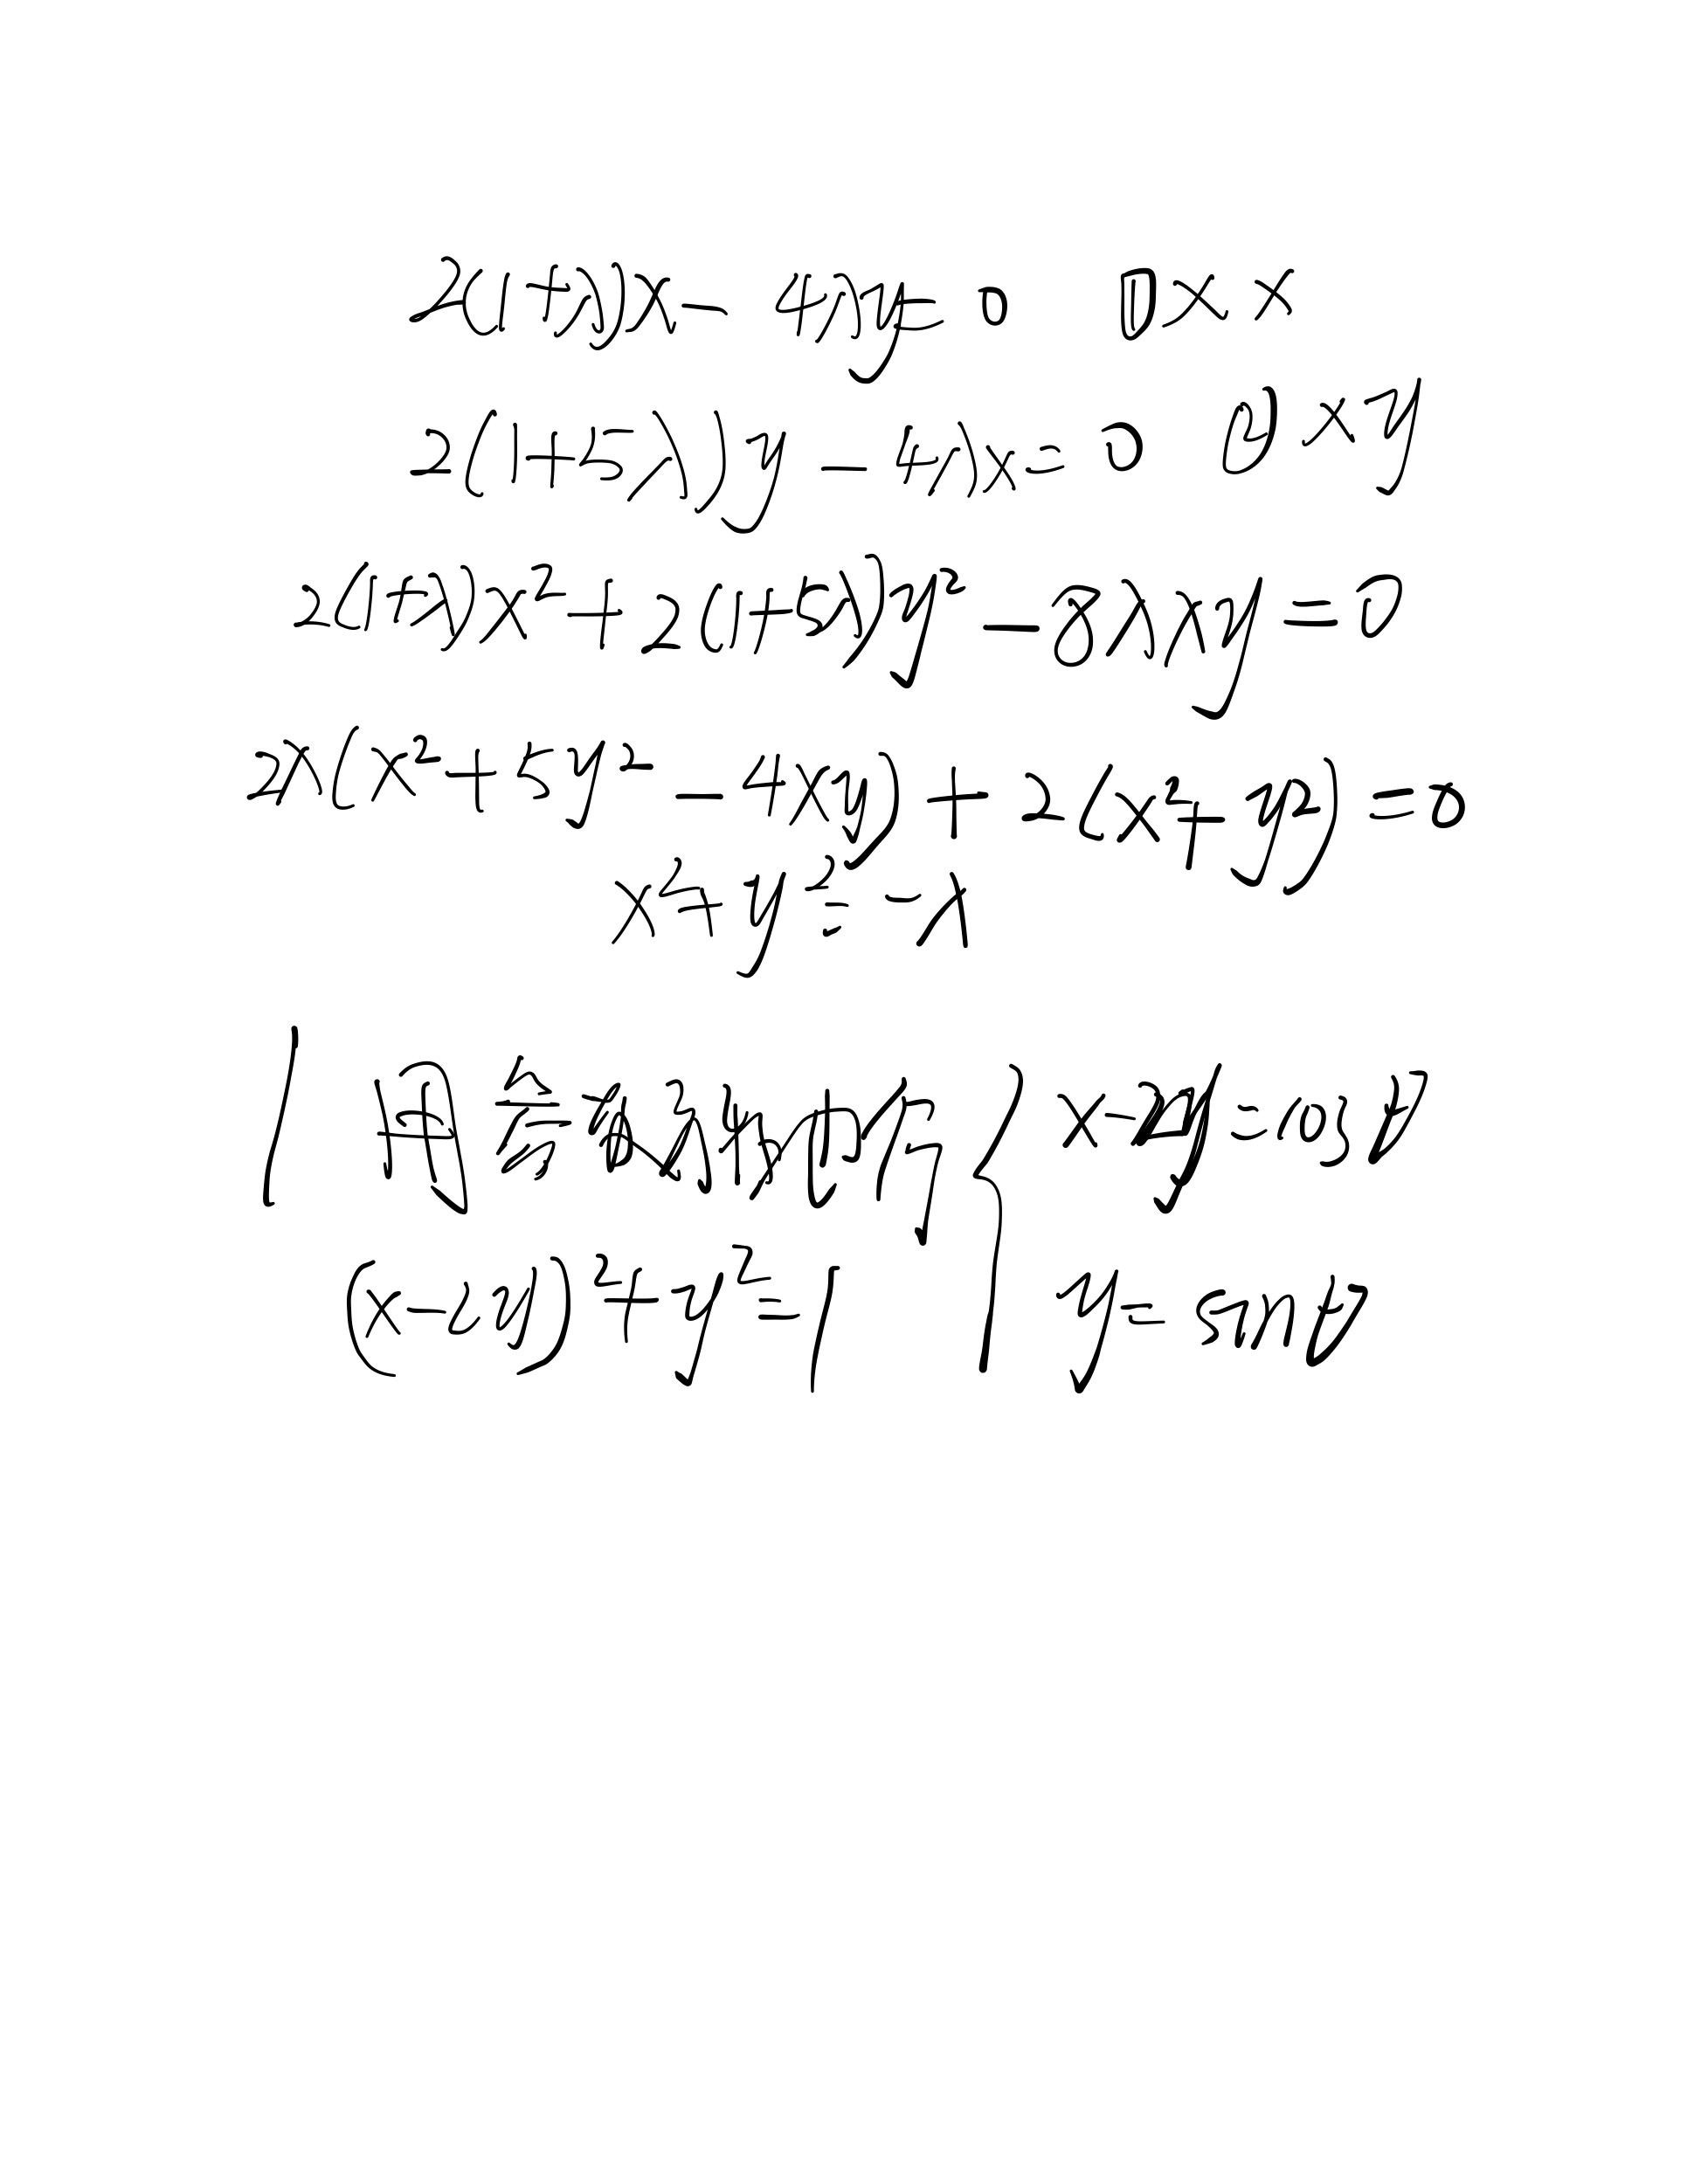 2(1+λ)x - 4λy = 0 ①×x
2(1+5λ)y - 4λx = 0 ②×y
2(1+λ)x² + 2(1+5λ)y² - 8λxy = 0
2λ(x²+5y² - 4xy) + 2(x²+y²) = 0
x²+y² = -λ
用 { x-2y = cosθ
(x-2y)²+y²=1 y = sinθ